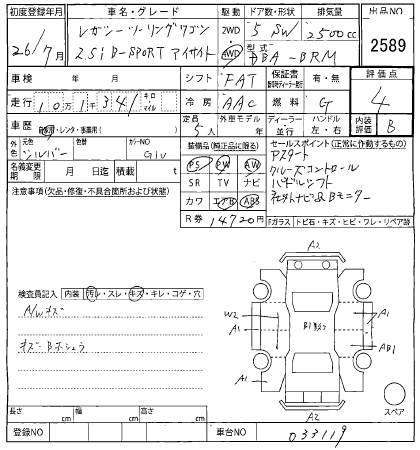 初度登録年月 車名・グレード 駆動 ドア数・形状 排気量 出品NO
26/7月 レガシーツーリングワゴン 2WD 4WD 5 SW 2500cc 2589
2.5i B-SPORT アイサイト 型式 DBA-BRM
車検 年 月 シフト FAT 保証書 有・無 評価点
走行 10万1千341 キロ マイル 冷房 AAC 燃料 G 4
車歴 自家用・レンタ・事業用( ) 定員 5人 外車モデル 年 ディーラー 並行 ハンドル 左・右 内装評価 B
元色 シルバー 色替 カラーNO G1U 装備品(純正品に限る) セールスポイント(正常に作動するもの)
名義変更期限 月 日迄 積載 t PS PW AW アスタート
注意事項(欠品・修復・不具合箇所および状態) SR TV ナビ クルーズコントロール
カワ エアB ABS パドルシフト
R券 14720円 ナビ&Bモニター
Fガラス トビ石・キズ・ヒビ・ワレ・リペア跡
検査員記入 内装 汚レ・スレ・キズ・キレ・コゲ・穴
A/Wキズ
キズBホシュウ
A2
W2
A1
A1
A1
AB1
A2
スペア
長さ cm 幅 cm 高さ cm
登録NO 車台NO 033119